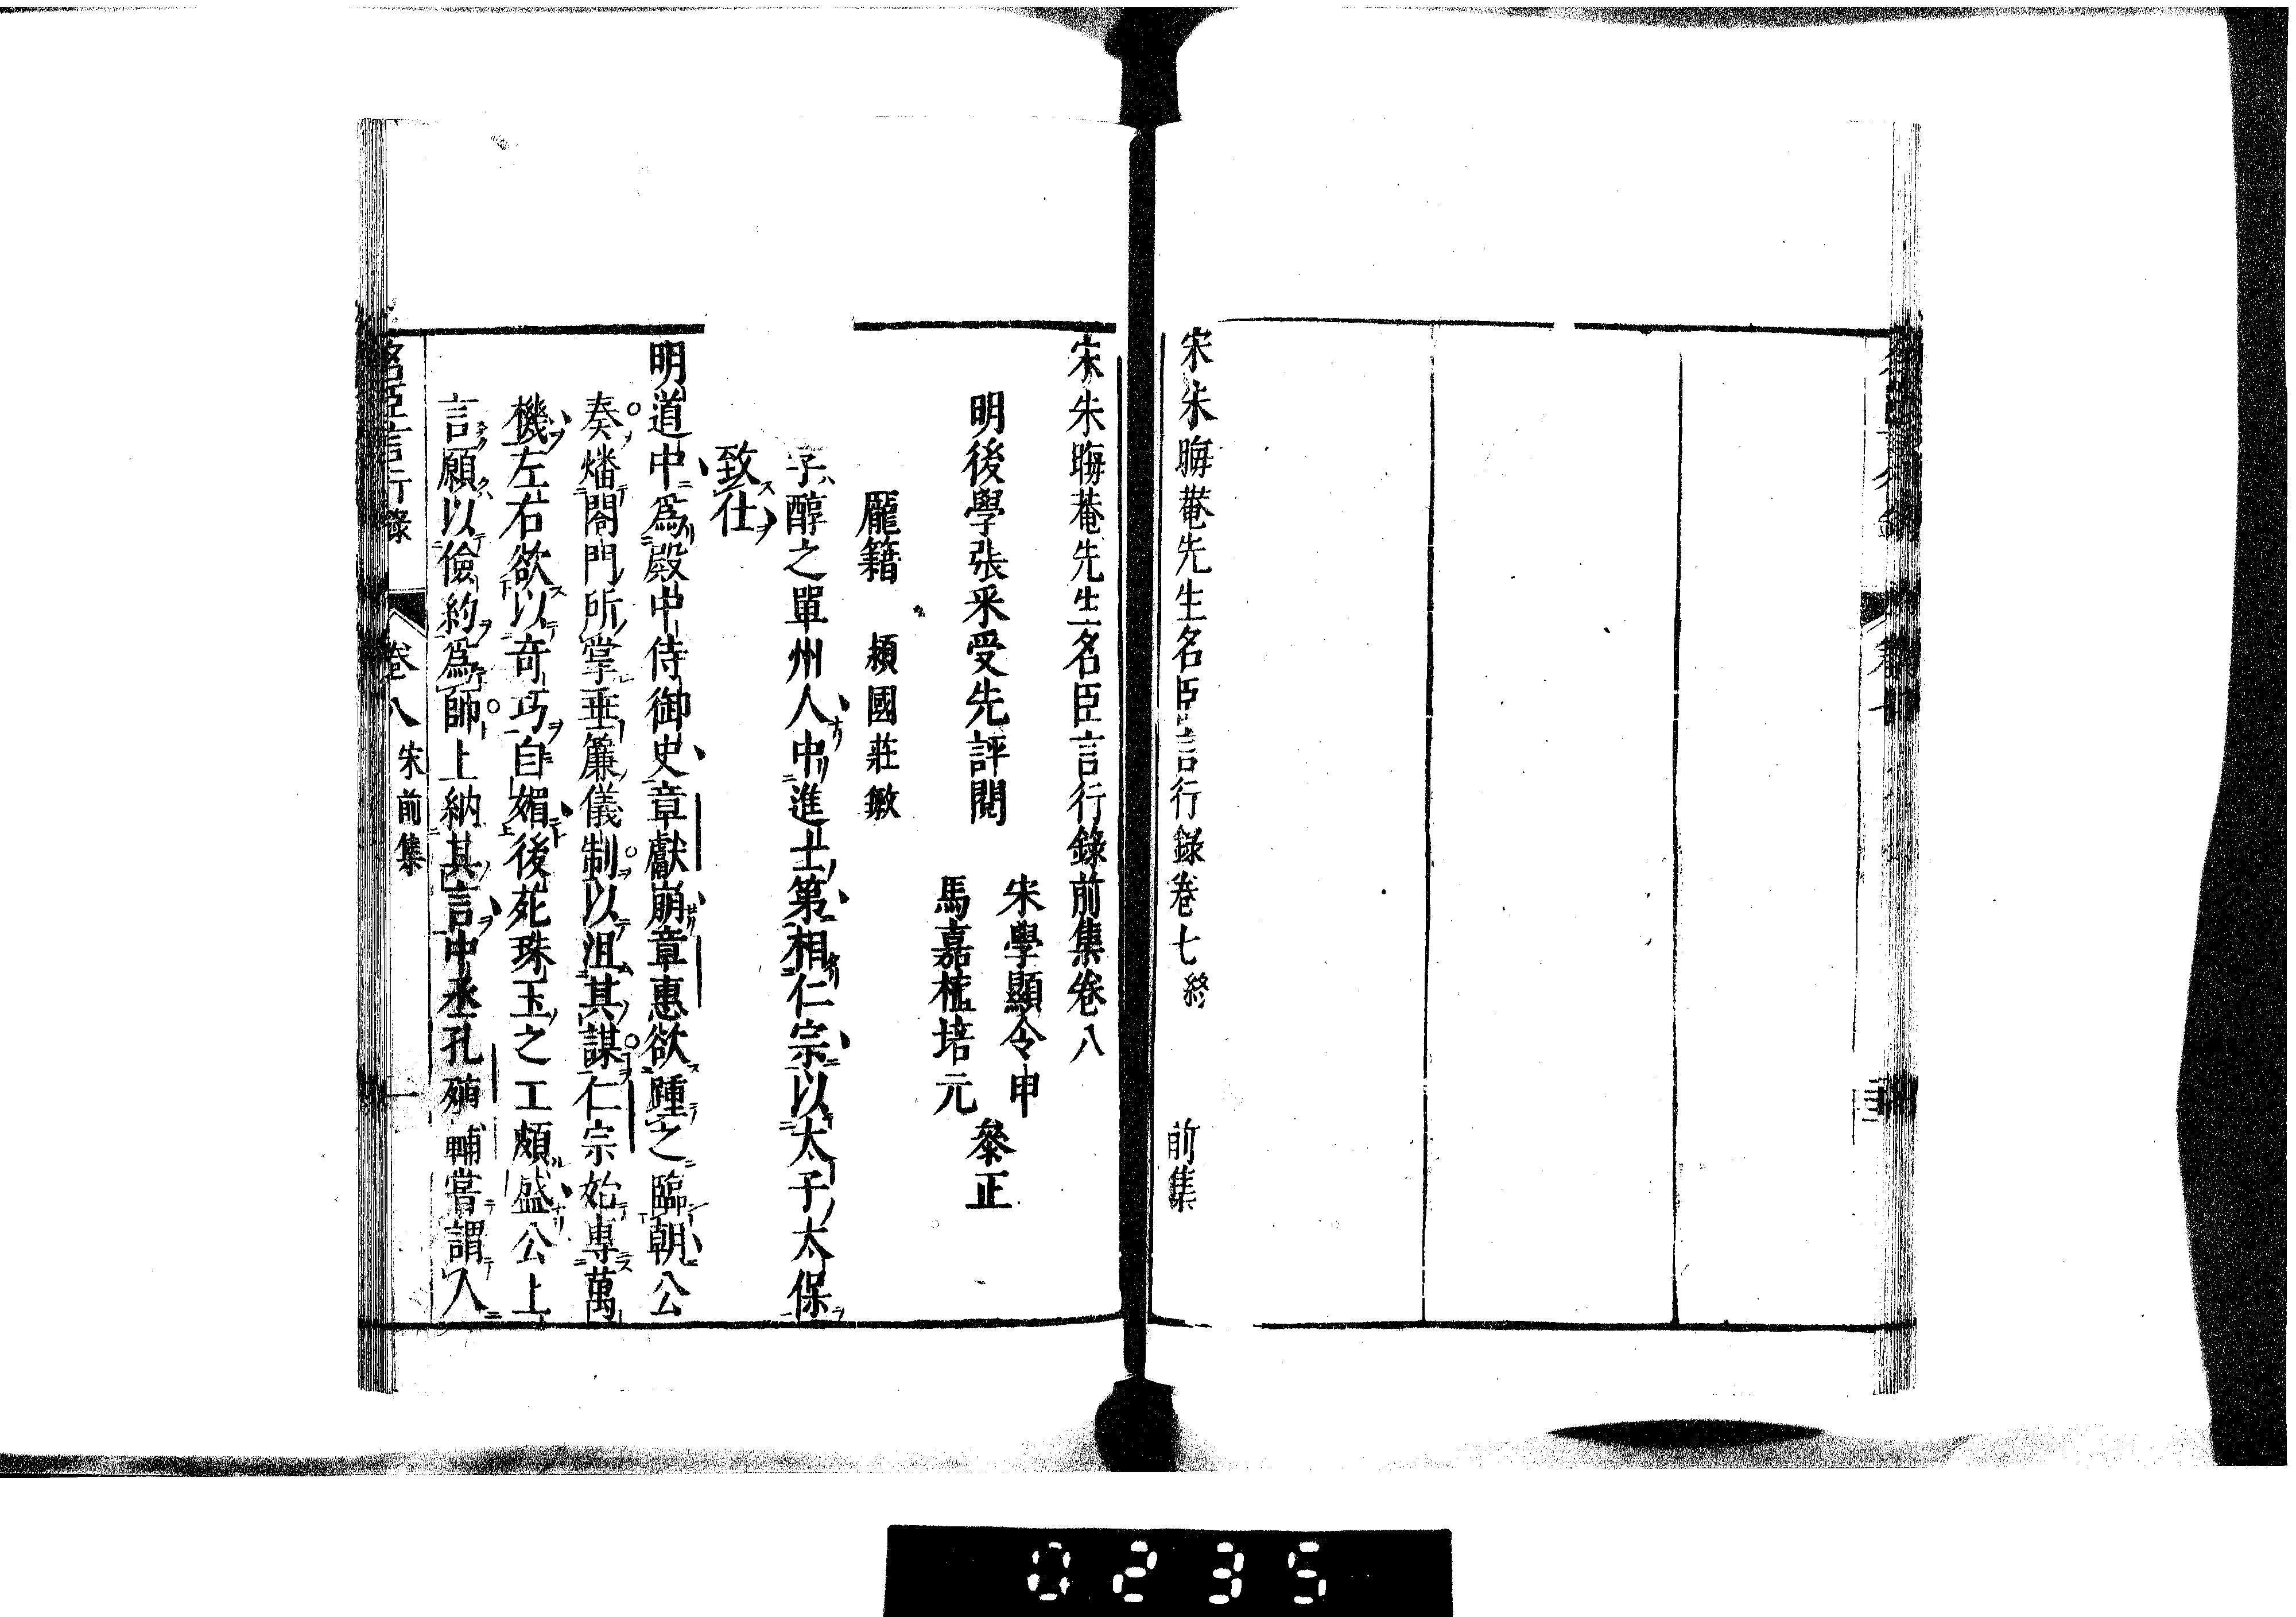 宋朱晦菴先生名臣言行錄卷七終　前集
宋朱晦菴先生名臣言行錄前集卷八
明後學張采受先評閱
宋學顯令申
馬嘉植培元
叅正
龐籍　穎國莊敏
字醇之單州人中進士第相仁宗以太子太保
致仕
明道中爲殿中侍御史章獻崩章惠欲踵之臨朝公
奏燔閤門所掌垂簾儀制以沮其謀仁宗始專萬
機左右欲以奇巧自媚後苑珠玉之工頗盛公上
言願以儉約爲師上納其言中丞孔道輔嘗謂人
名臣言行錄　卷八　宋前集　一
0235